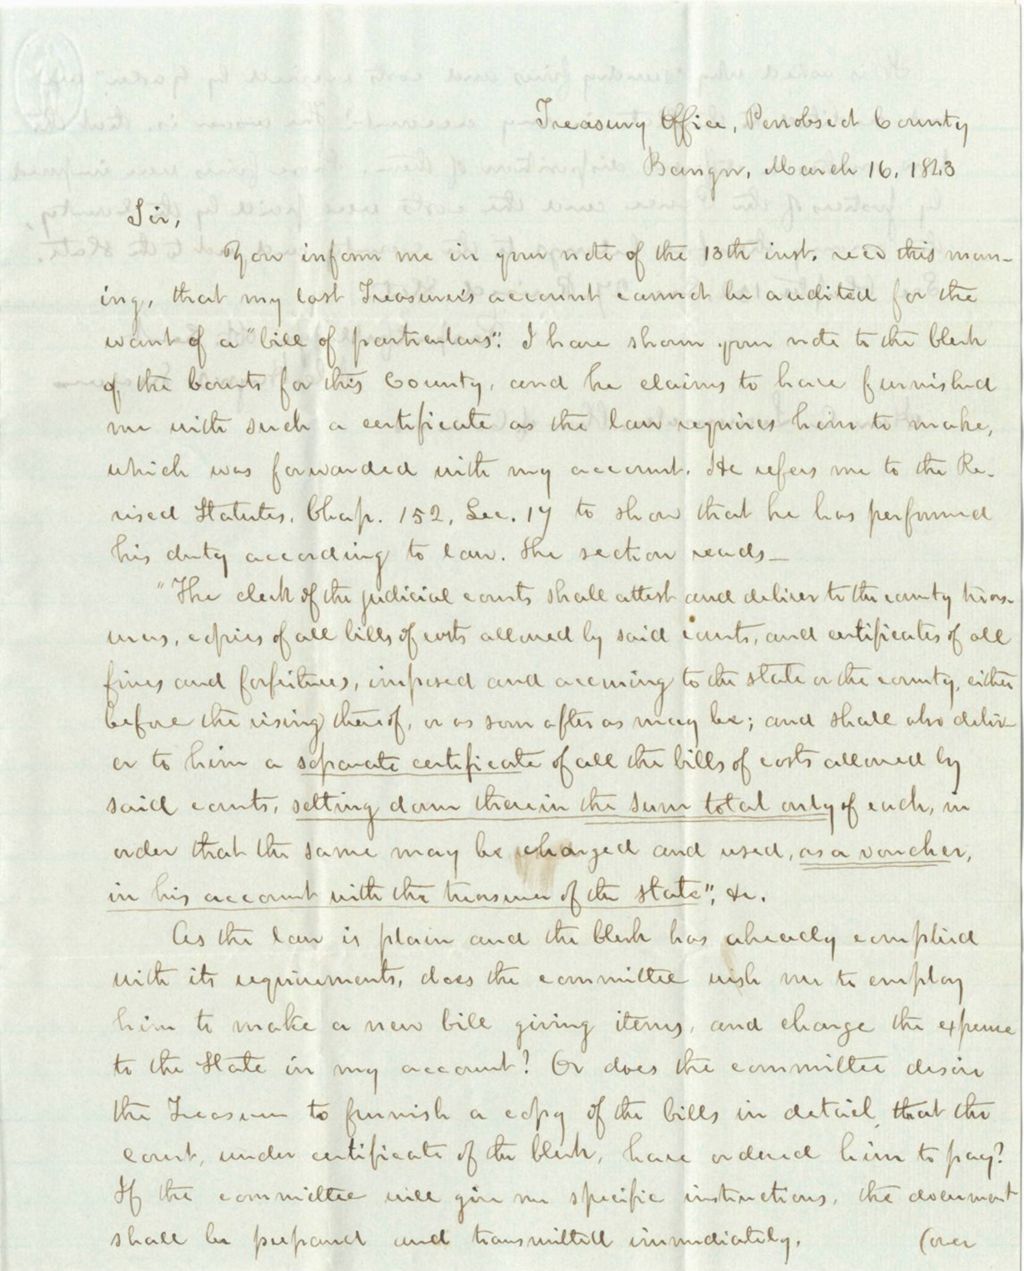 Treasury Office, Penobscot County
Bangor, March 16, 1843
Sir,
You inform me in your note of the 13th inst. rec'd this morn-
ing, that my last Treasurer's account cannot be audited for the
want of a "bill of particulars". I have shown your note to the Clerk
of the Courts for this County, and he claims to have furnished
me with such a certificate as the law requires him to make,
which was forwarded with my account. He refers me to the Re-
vised Statutes, Chap. 152, Sec. 17 to show that he has performed
his duty according to law. The section reads—
"The clerk of the judicial courts shall attest and deliver to the county treas-
urers, copies of all bills of costs allowed by said courts, and certificates of all
fines and forfeitures, imposed and accruing to the state or the county, either
before the rising thereof, or as soon after as may be; and shall also deliv-
er to him a separate certificate of all the bills of costs allowed by
said courts, setting down therein the sum total only of each, in
order that the same may be charged and used, as a voucher,
in his account with the treasurer of the state", &c.
As the law is plain and the Clerk has already complied
with its requirements, does the committee wish me to employ
him to make a new bill giving items, and charge the expense
to the State in my account? Or does the committee desire
the Treasurer to furnish a copy of the bills in detail, that the
court, under certificate of the Clerk, have ordered him to pay?
If the committee will give me specific instructions, the document
shall be prepared and transmitted immediately.
(over